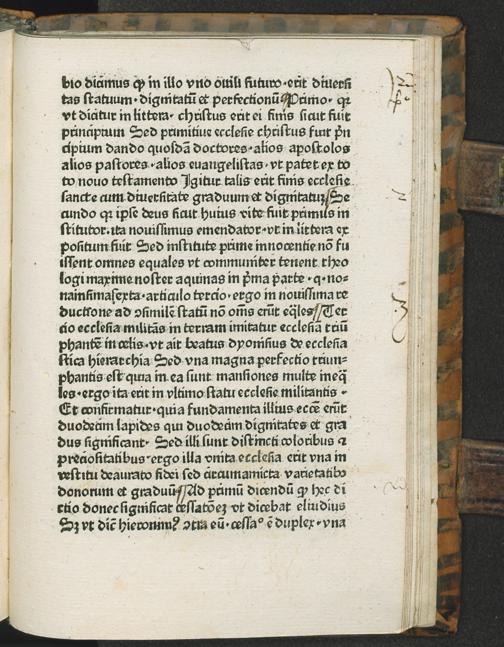 bio dicimus ꝙ in illo vno ouili futuro · erit diuersi
tas statuum · dignitatū et perfectionū ¶ Primo · qꝛ
vt dicitur in littera · christus erit ei finis sicut fuit
principium Sed primitiue ecclesie christus fuit pͥn
cipium dando quosdā doctores · alios apostolos
alios pastores · alios euangelistas · vt patet ex to
to nouo testamento Igitur talis erit finis ecclesie
sancte cum diuersitate graduum et dignitatuꝫ ¶ Se
cundo qꝛ ipse deus sicut huius vite fuit primus in
stitutor · ita nouissimus emendator · vt in littera ex
positum fuit Sed institute prime innocentie nō fu
issent omnes equales vt communiter tenent theo
logi maxime noster aquinas in pͥma ꝑarte · q · no-
nainsimasexta · articulo tercio · ergo in nouissima re
ductione ad ꝯsimilē statū nō oms̄ erūt eqͣles ¶ Ter
cio ecclesia militās in terram imitatur ecclesiā triū
phantē in celis · vt ait beatus dyonisius de ecclesia
stica hierarchia Sed vna magna perfectio trium-
phantis est quia in ea sunt mansiones multe ineq̄
les · ergo ita erit in vltimo statu ecclesie militantis ·
Et confirmatur · quia fundamenta illius eccē erūt
duodecim lapides qui duodecim dignitates et gra
dus significant · Sed illi sunt distincti coloribus ⁊
preciositatibus · ergo illa vnita ecclesia erit vna in
vestitu deaurato fidei sed circumamicta varietatibꝫ
donorum et graduū ¶ Ad primū dicendū ꝙ hec di
ctio donec significat cessatōeꝫ vt dicebat eliuidius
Sꝫ vt dic̄ hieronimꝰ ꝯtra eū · cessaᵒ ē duplex · vna